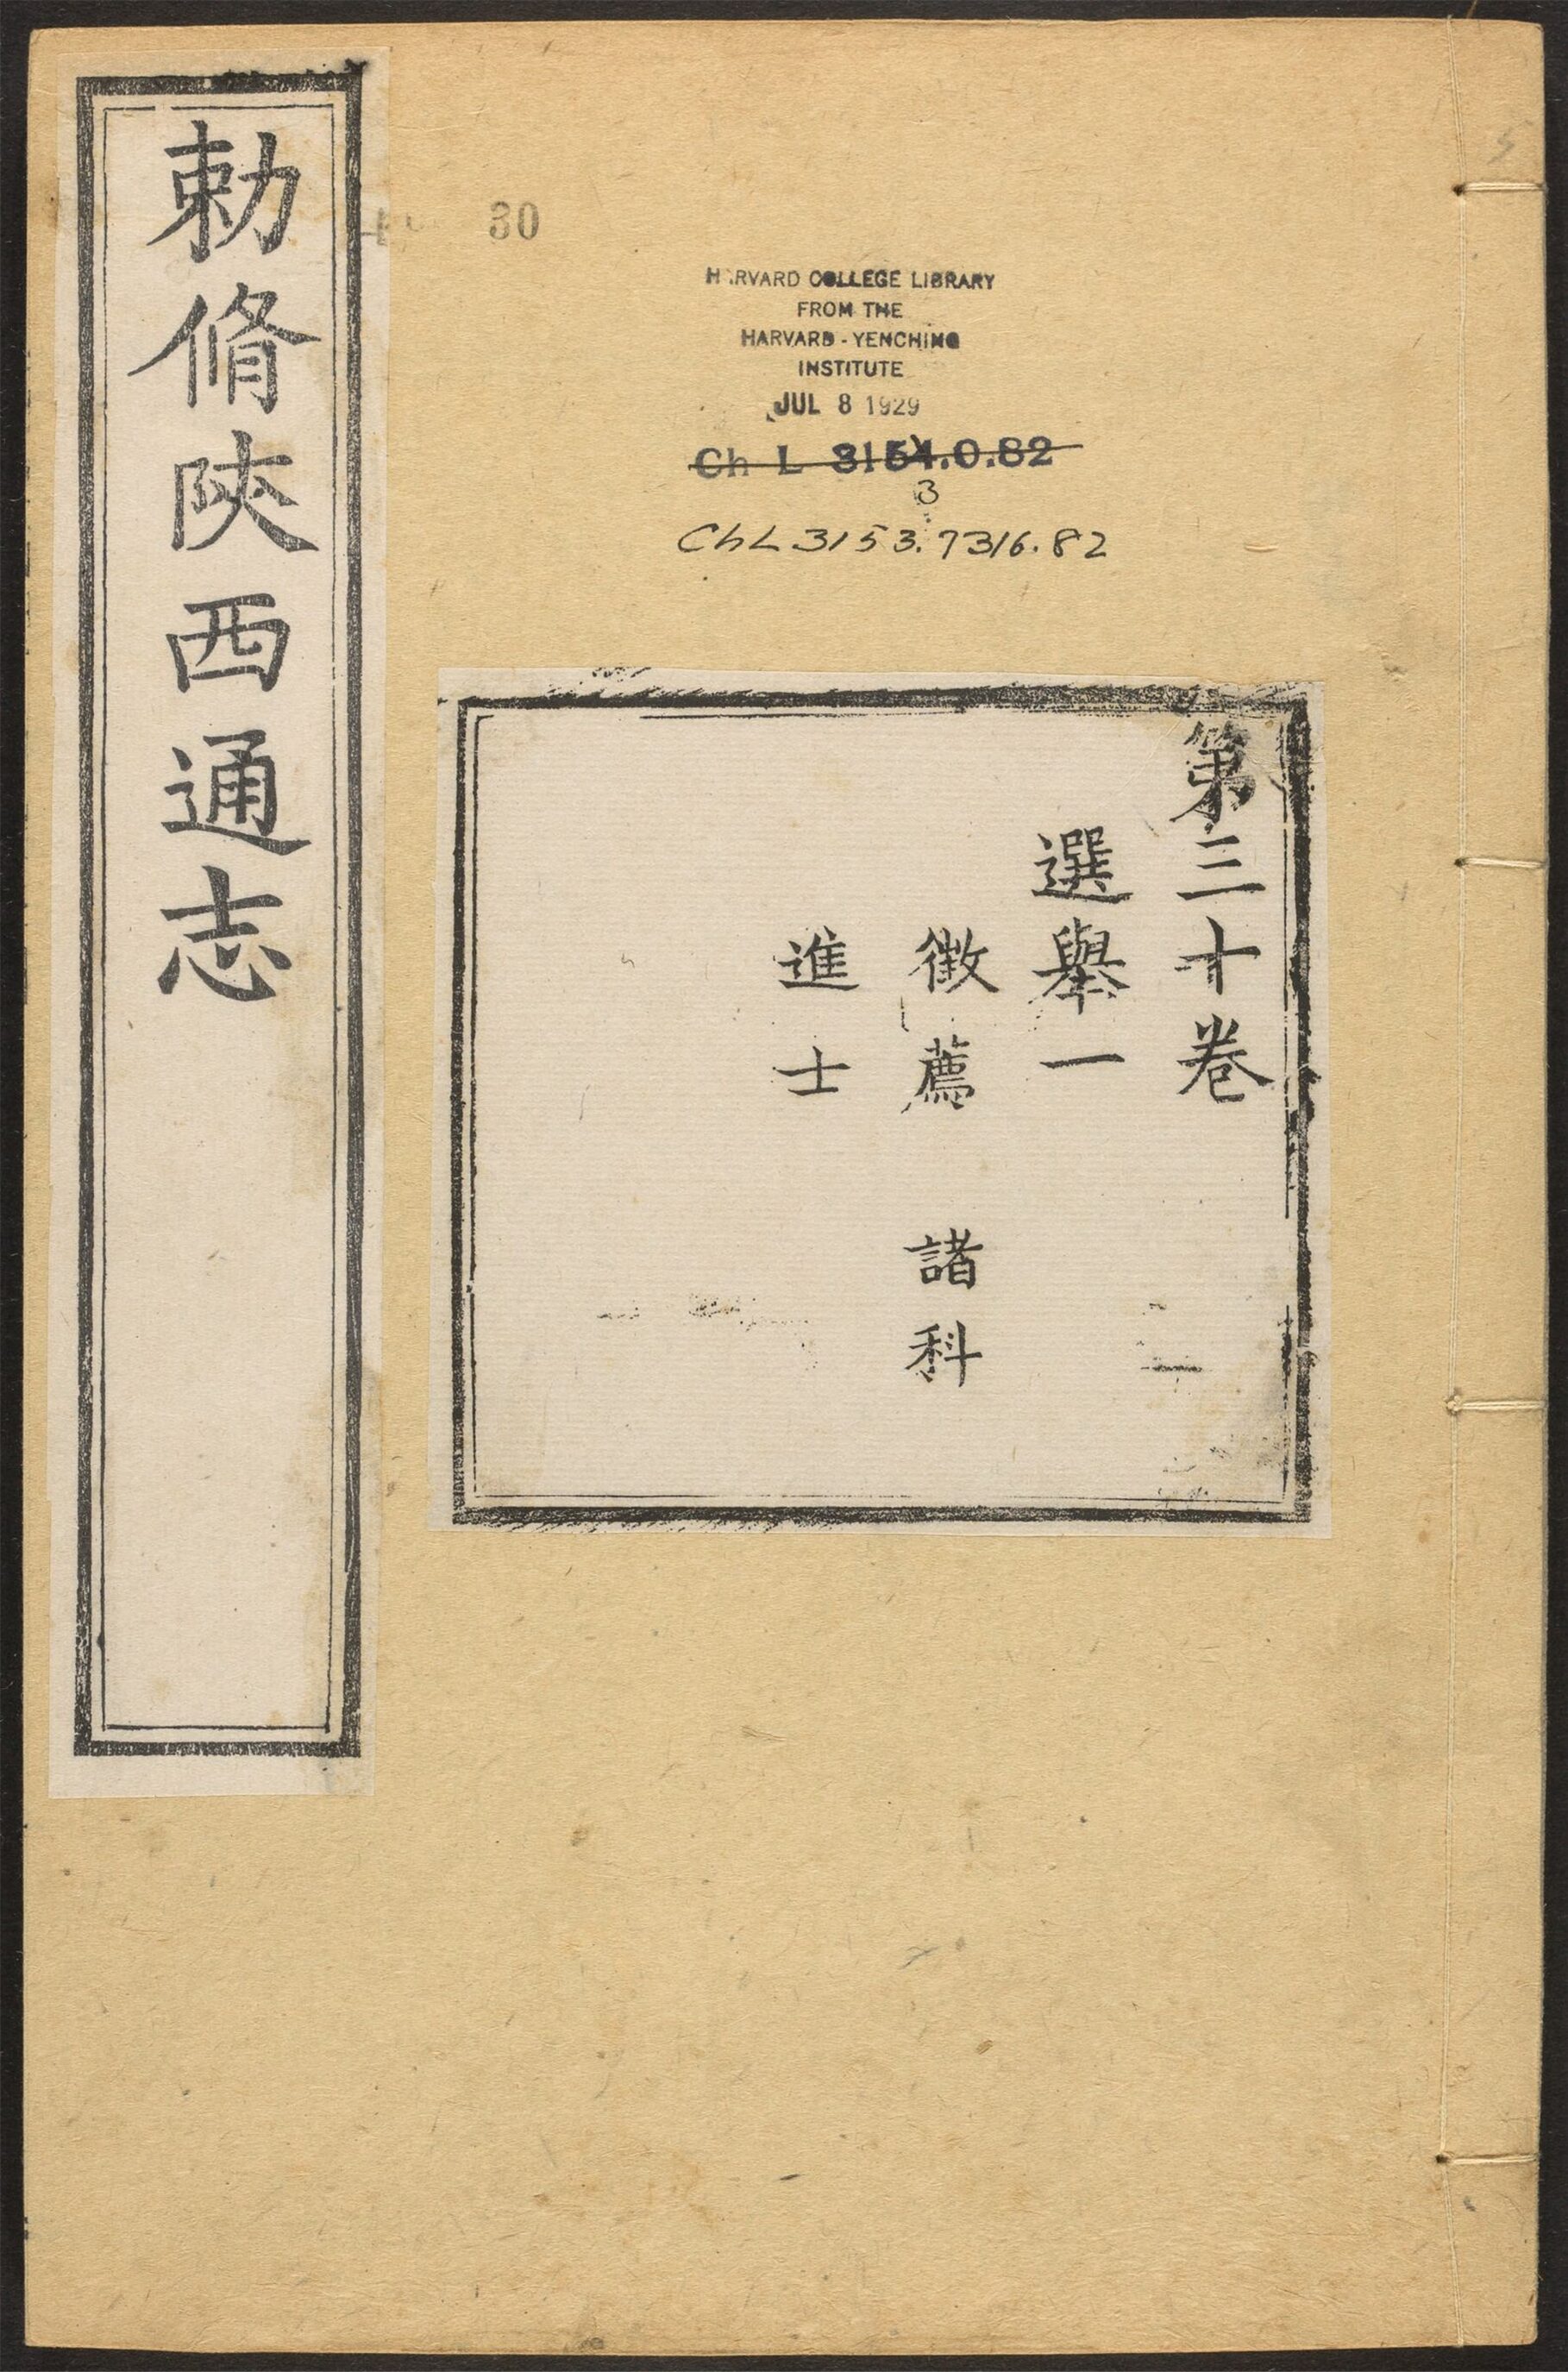 勅脩陝西通志
30
HARVARD COLLEGE LIBRARY
FROM THE
HARVARD-YENCHING
INSTITUTE
JUL 8 1929
Ch L 3154.0.82
3
ChL 3153.7316.82
第三十卷
選舉一
徵薦 諸科
進士